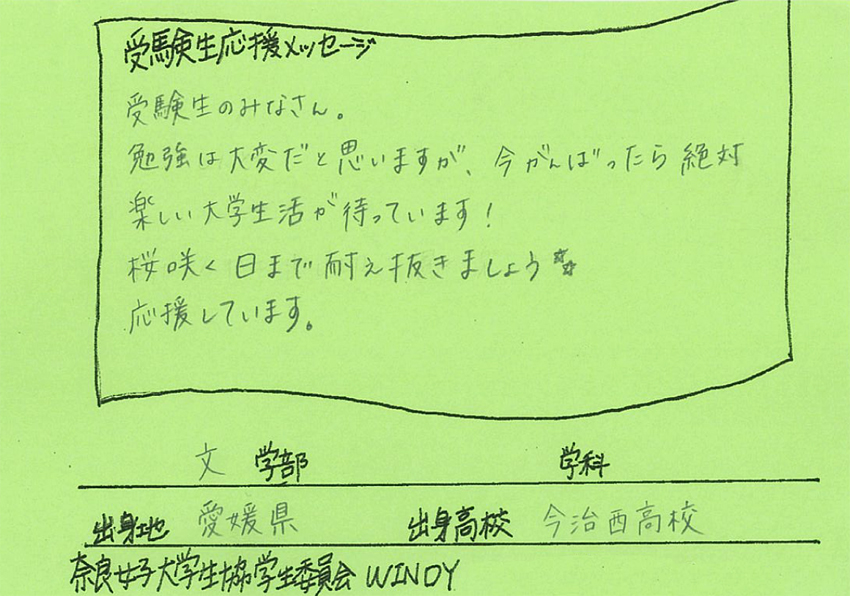 受験生応援メッセージ
受験生のみなさん。
勉強は大変だと思いますが、今がんばったら絶対
楽しい大学生活が待っています!
桜咲く日まで耐え抜きましょう☆☆
応援しています。
文 学部 学科
出身地 愛媛県 出身高校 今治西高校
奈良女子大学生協学生委員会 WINDY